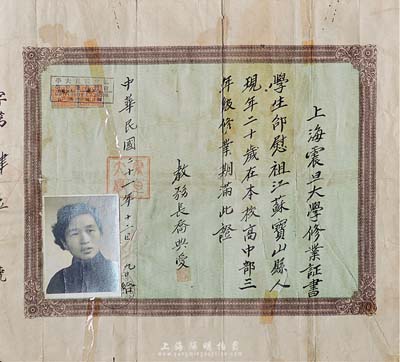 上海震旦大學修業証書
學生邰慰祖江蘇寶山縣人
現年二十歲在本校高中部三
年級修業期滿此證
教務長喬典愛
中華民國二十一年十二月 日
字第 肆 號
上海陽明拍賣